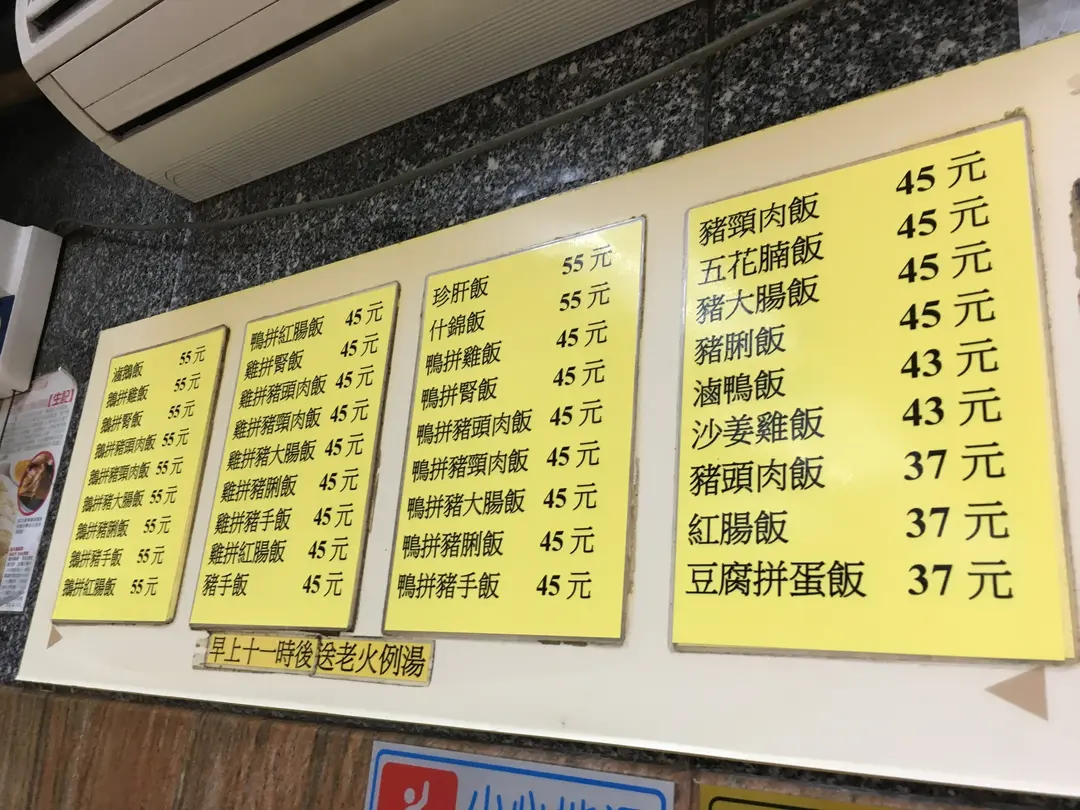 滷鵝飯 55元
鵝拼雞飯 55元
鵝拼腎飯 55元
鵝拼豬頭肉飯 55元
鵝拼豬頸肉飯 55元
鵝拼豬大腸飯 55元
鵝拼豬脷飯 55元
鵝拼豬手飯 55元
鵝拼紅腸飯 55元
鴨拼紅腸飯 45元
雞拼腎飯 45元
雞拼豬頭肉飯 45元
雞拼豬頸肉飯 45元
雞拼豬大腸飯 45元
雞拼豬脷飯 45元
雞拼豬手飯 45元
雞拼紅腸飯 45元
豬手飯 45元
珍肝飯 55元
什錦飯 55元
鴨拼雞飯 45元
鴨拼腎飯 45元
鴨拼豬頭肉飯 45元
鴨拼豬頸肉飯 45元
鴨拼豬大腸飯 45元
鴨拼豬脷飯 45元
鴨拼豬手飯 45元
豬頸肉飯 45元
五花腩飯 45元
豬大腸飯 45元
豬脷飯 45元
滷鴨飯 43元
沙姜雞飯 43元
豬頭肉飯 37元
紅腸飯 37元
豆腐拼蛋飯 37元
早上十一時後送老火例湯
【生記】
小心地